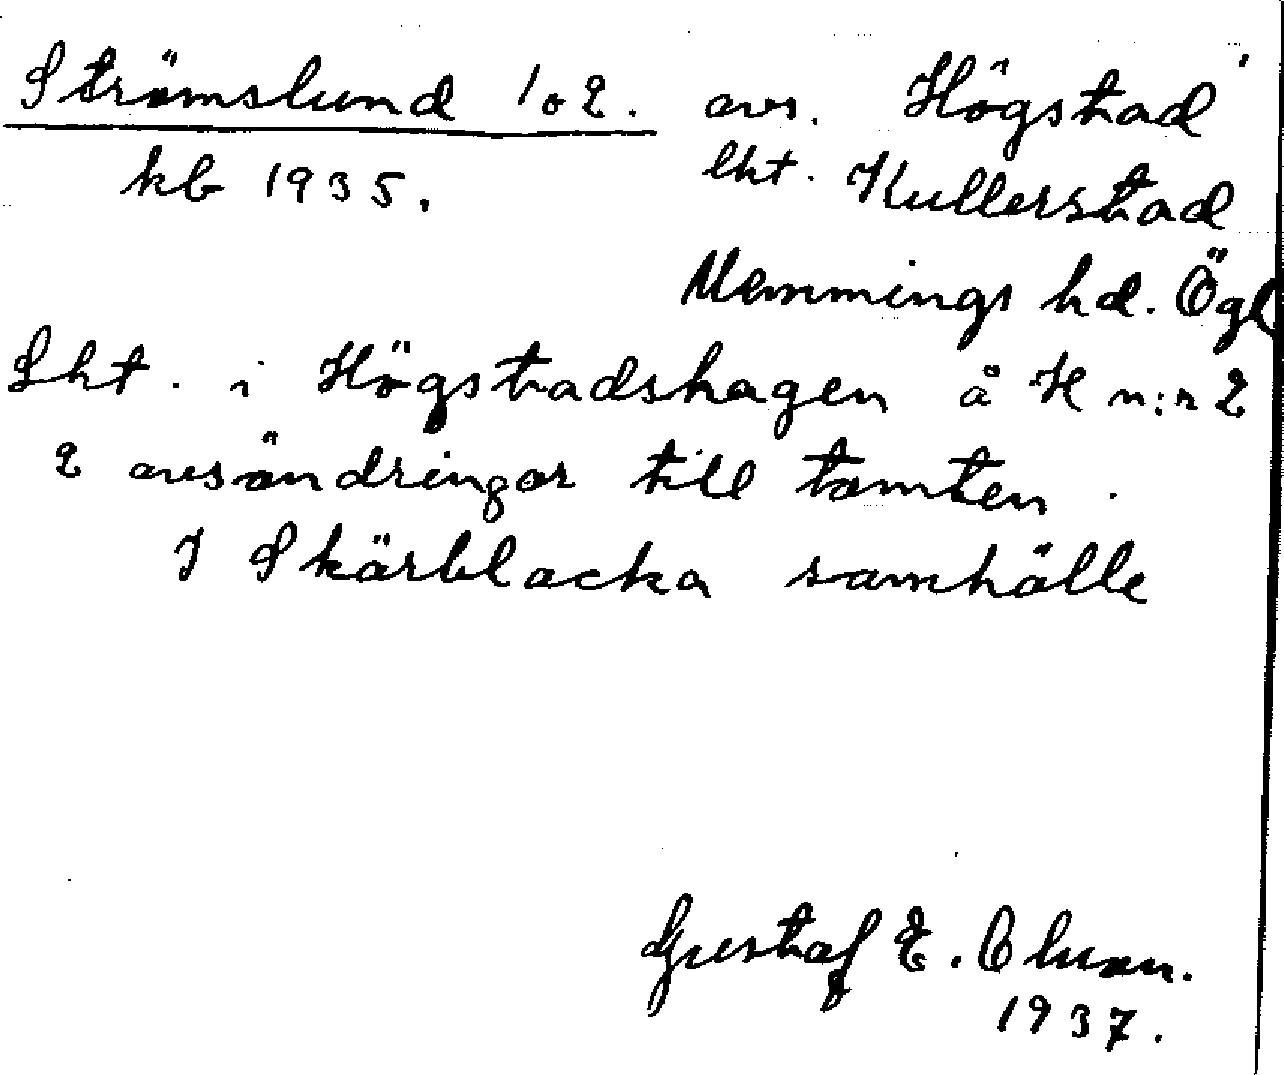 Strömslund 1 o 2. avs. Högstad
kb 1935. lht. Kullerstad
Memmings hd. Ögl
Lht. i Högstadshagen å H n:r 2
2 avsöndringar till tomten.
I Skärblacka samhälle
Gustaf E.
1937.